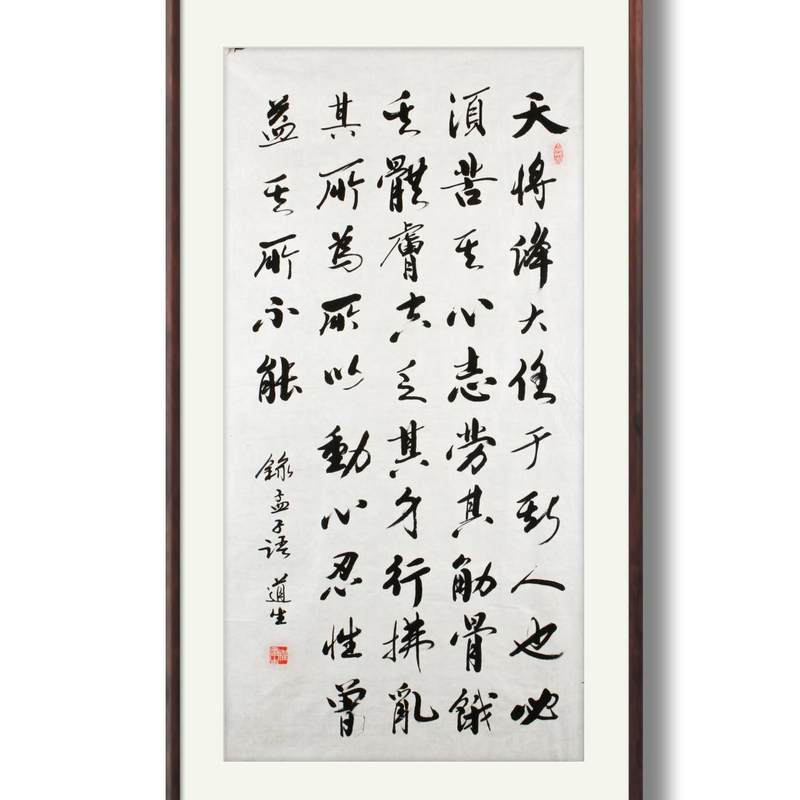 天将降大任于斯人也必
須苦其心志劳其筋骨餓
其體膚空乏其身行拂亂
其所為所以動心忍性曾
益其所不能
錄孟子语 道生